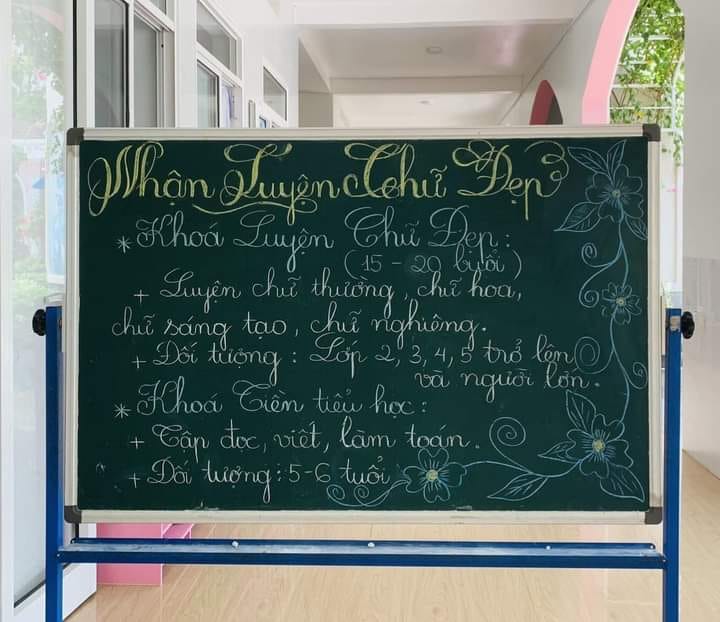 Nhận Luyện Chữ Đẹp
* Khoá Luyện Chữ Đẹp:
(15 - 20 buổi)
+ Luyện chữ thường, chữ hoa,
chữ sáng tạo, chữ nghiêng.
+ Đối tượng: Lớp 2, 3, 4, 5 trở lên
và người lớn.
* Khoá Tiền tiểu học:
+ Tập đọc, viết, làm toán.
+ Đối tượng: 5-6 tuổi